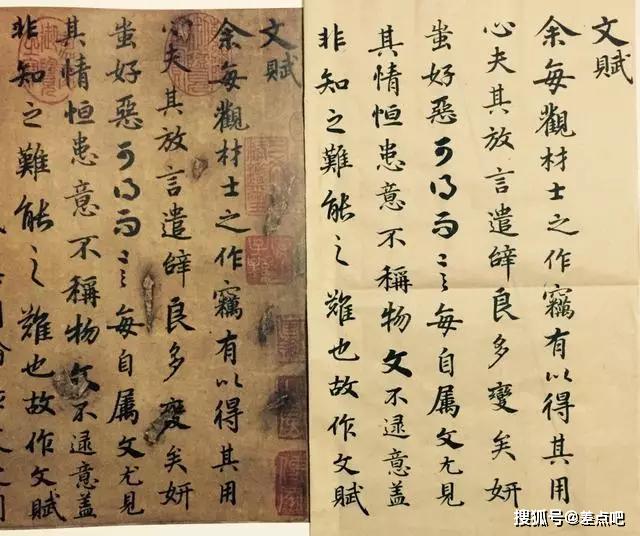 文賦
余每觀材士之作竊有以得其用
心夫其放言遣辭良多變矣妍
蚩好惡可得而言每自屬文尤見
其情恒患意不稱物文不逮意蓋
非知之難能之難也故作文賦
文賦
余每觀材士之作竊有以得其用
心夫其放言遣辭良多變矣妍
蚩好惡可得而言每自屬文尤見
其情恒患意不稱物文不逮意蓋
非知之難能之難也故作文賦
搜狐号@差点吧